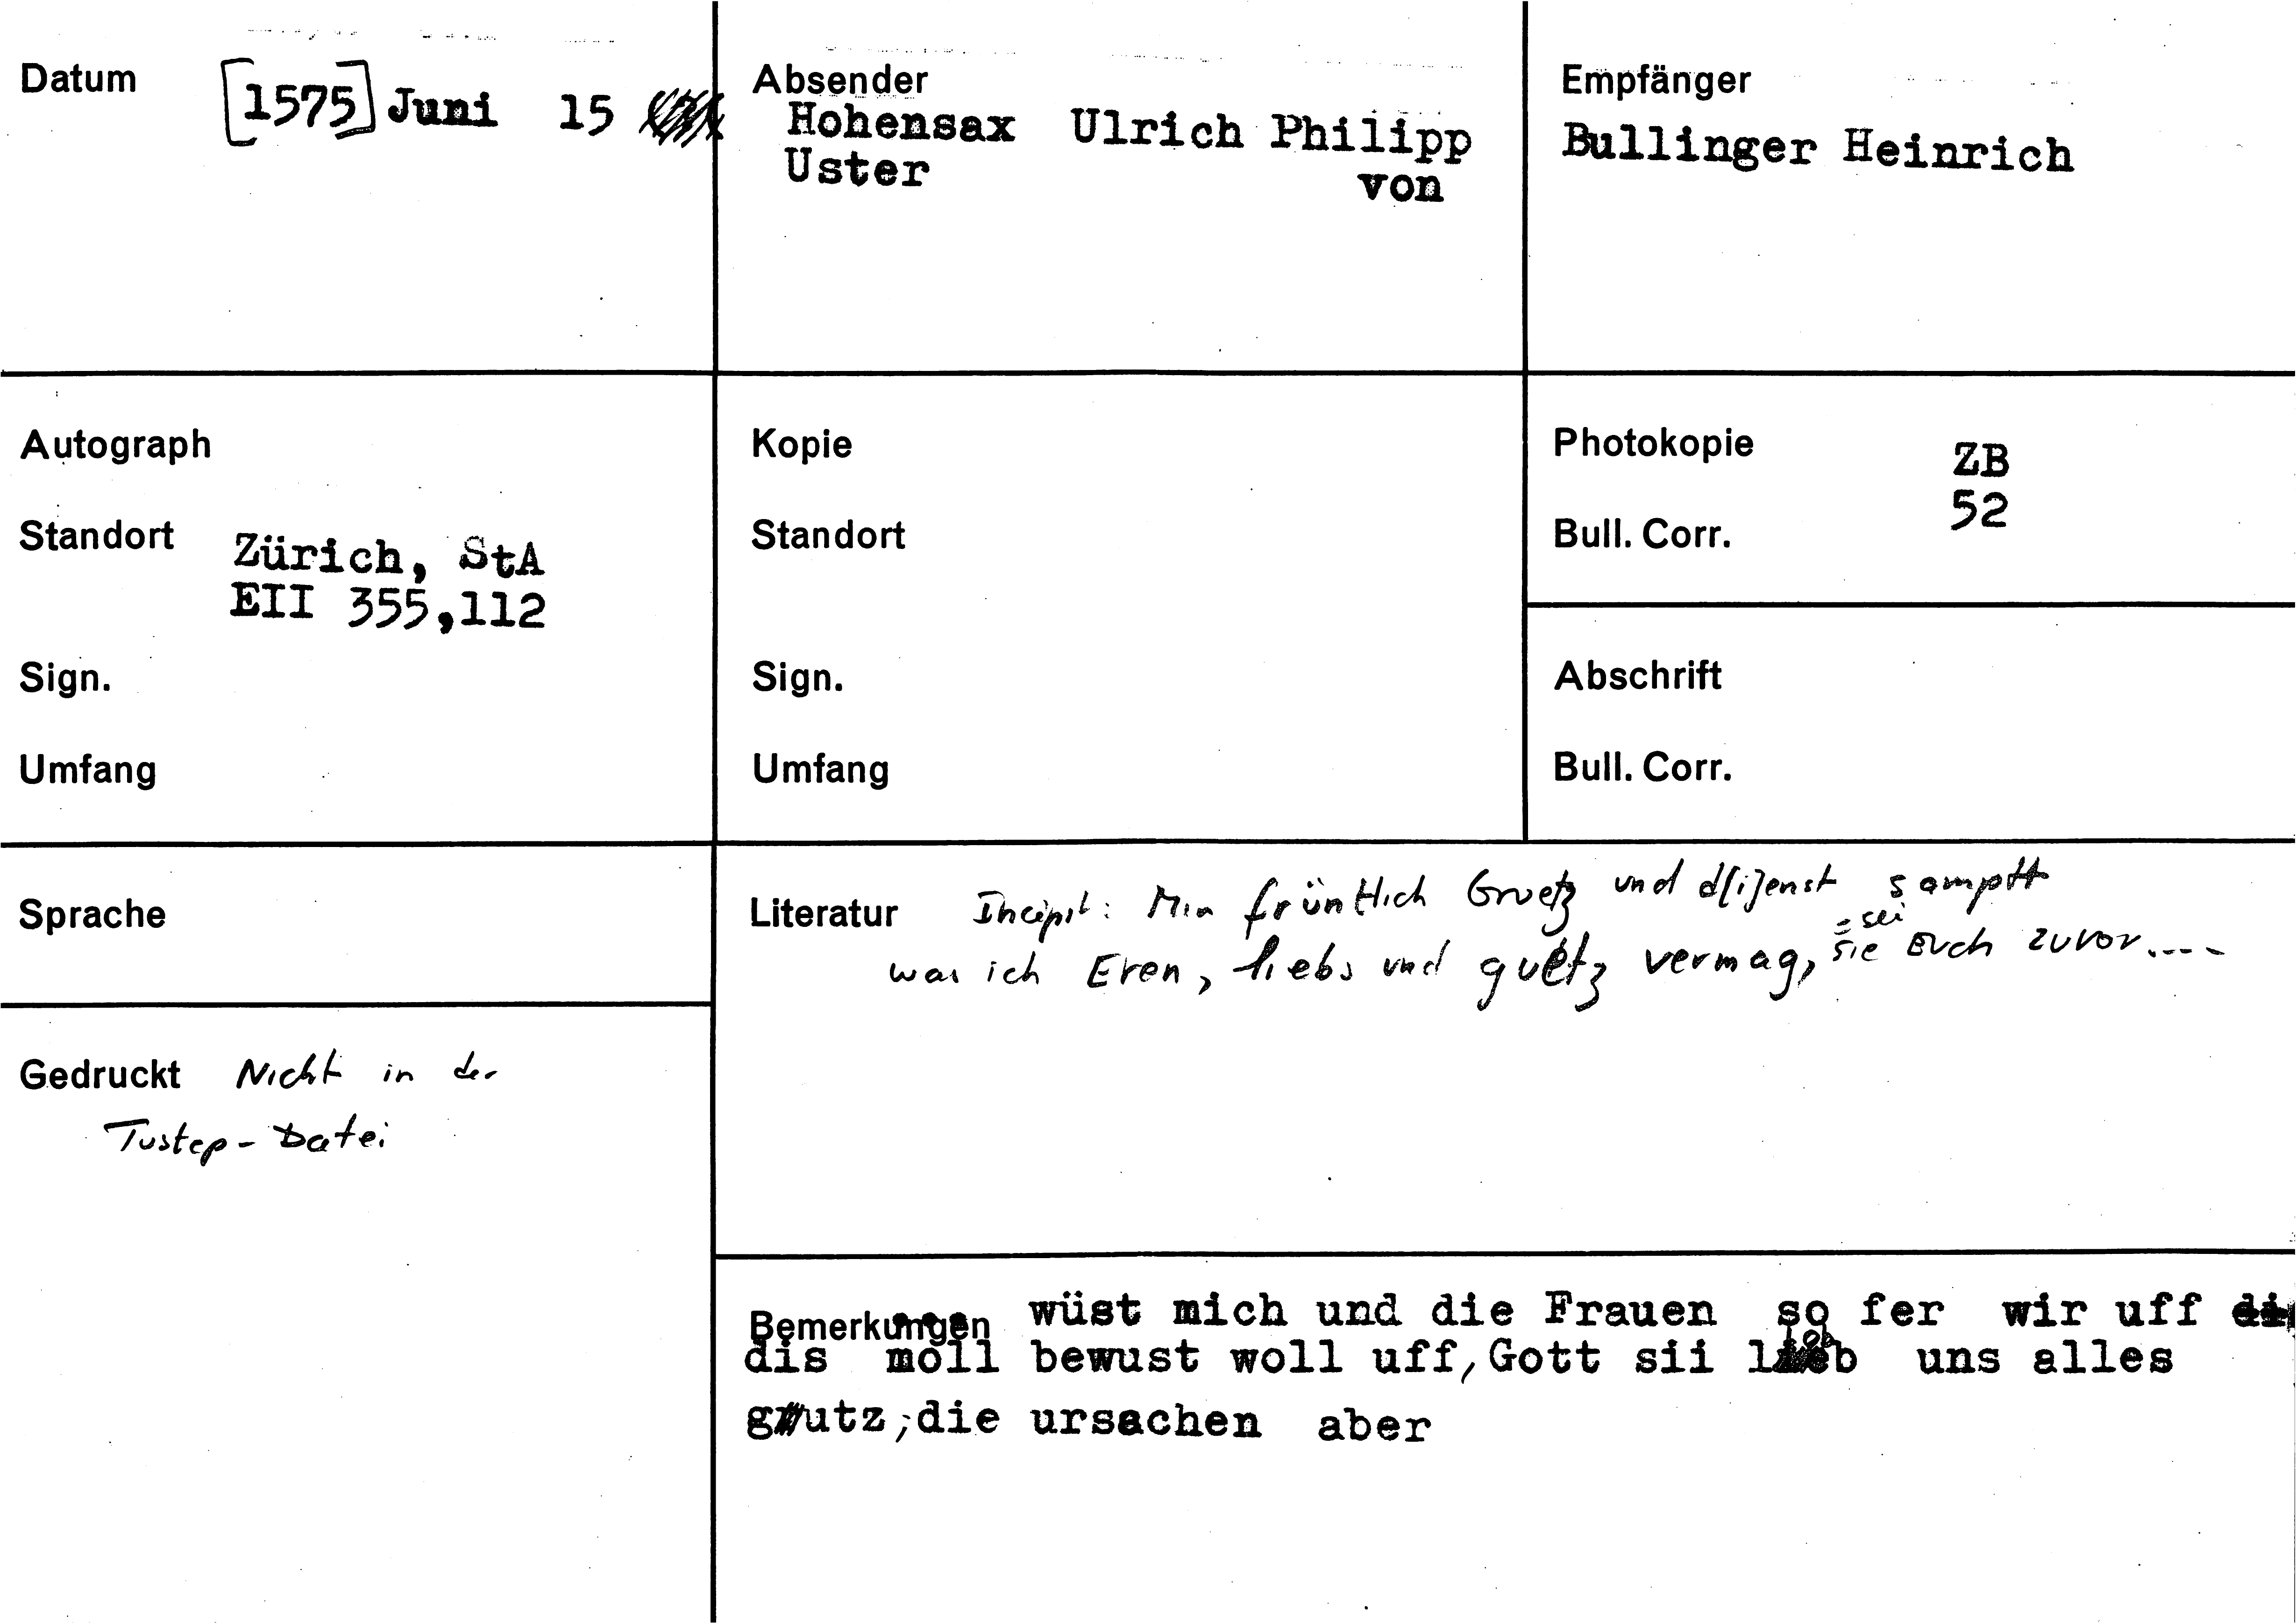 Datum [1575] Juni 15
Absender
Hohensax Ulrich Philipp
Uster von
Empfänger
Bullinger Heinrich
Autograph
Standort Zürich, StA
EII 355,112
Sign.
Umfang
Kopie
Standort
Sign.
Umfang
Photokopie ZB
Bull. Corr. 52
Abschrift
Bull. Corr.
Sprache
Gedruckt Nicht in der
Tustep-Datei
Literatur Incipit: Min früntlich Gruetz und d[i]enst samptt
= sei
was ich Eren, liebs und guetz vermag, sie Euch zuvor....
Bemerkungen wüst mich und die Frauen so fer wir uff
dis moll bewust woll uff, Gott sii lob uns alles
gutz, die ursachen aber